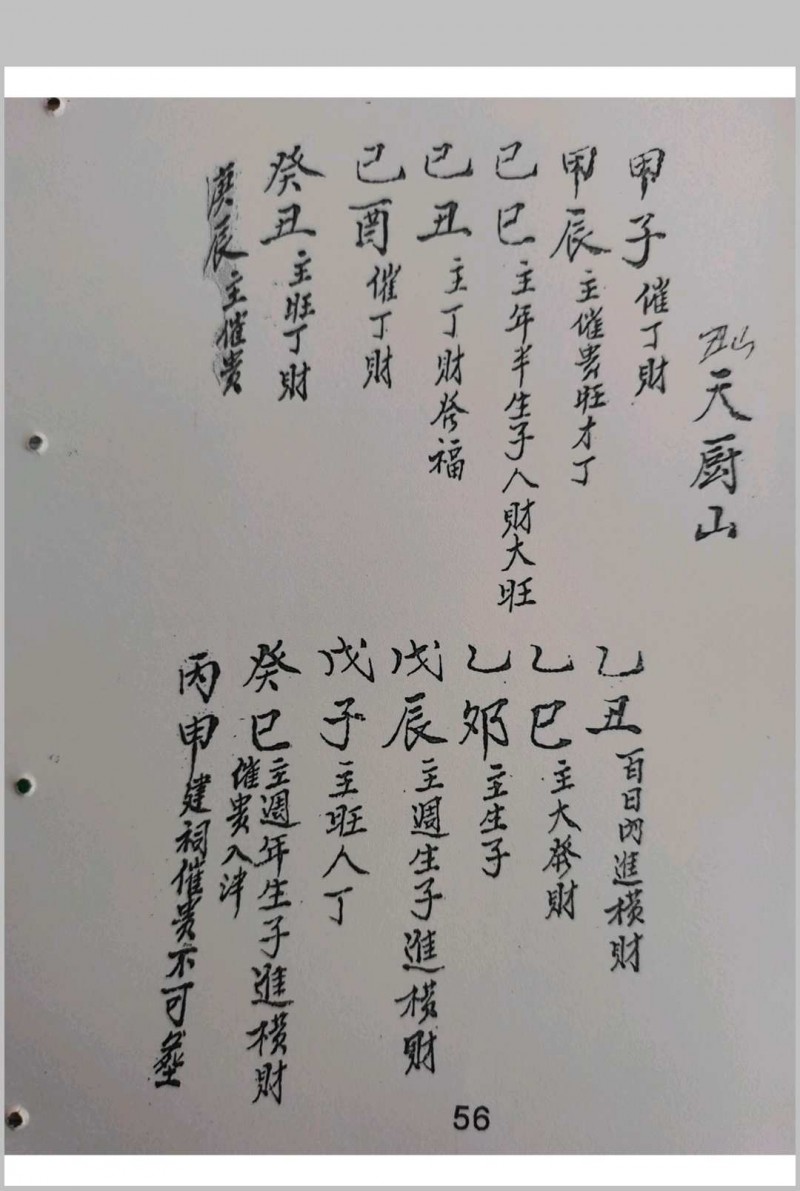 丑山
天厨山
甲子 催丁財
甲辰 主催貴旺才丁
己巳 主年半生子人財大旺
己丑 主丁財發福
己酉 催丁財
癸丑 主旺丁財
庚辰 主催貴
乙丑 百日內進橫財
乙巳 主大發財
乙卯 主生子
戊辰 主週生子進橫財
戊子 主旺人丁
癸巳 主週年生子進橫財
催貴入泮
丙申 建祠催貴不可塟
56